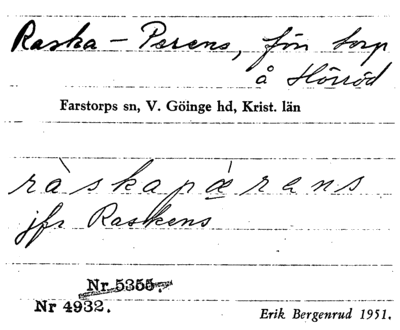 Raska-Perens, förr torp
å Hörröd
Farstorps sn, V. Göinge hd, Krist. län
ràskapærens
jfr Raskens
Nr 5355.
Nr 4932.
Erik Bergenrud 1951.